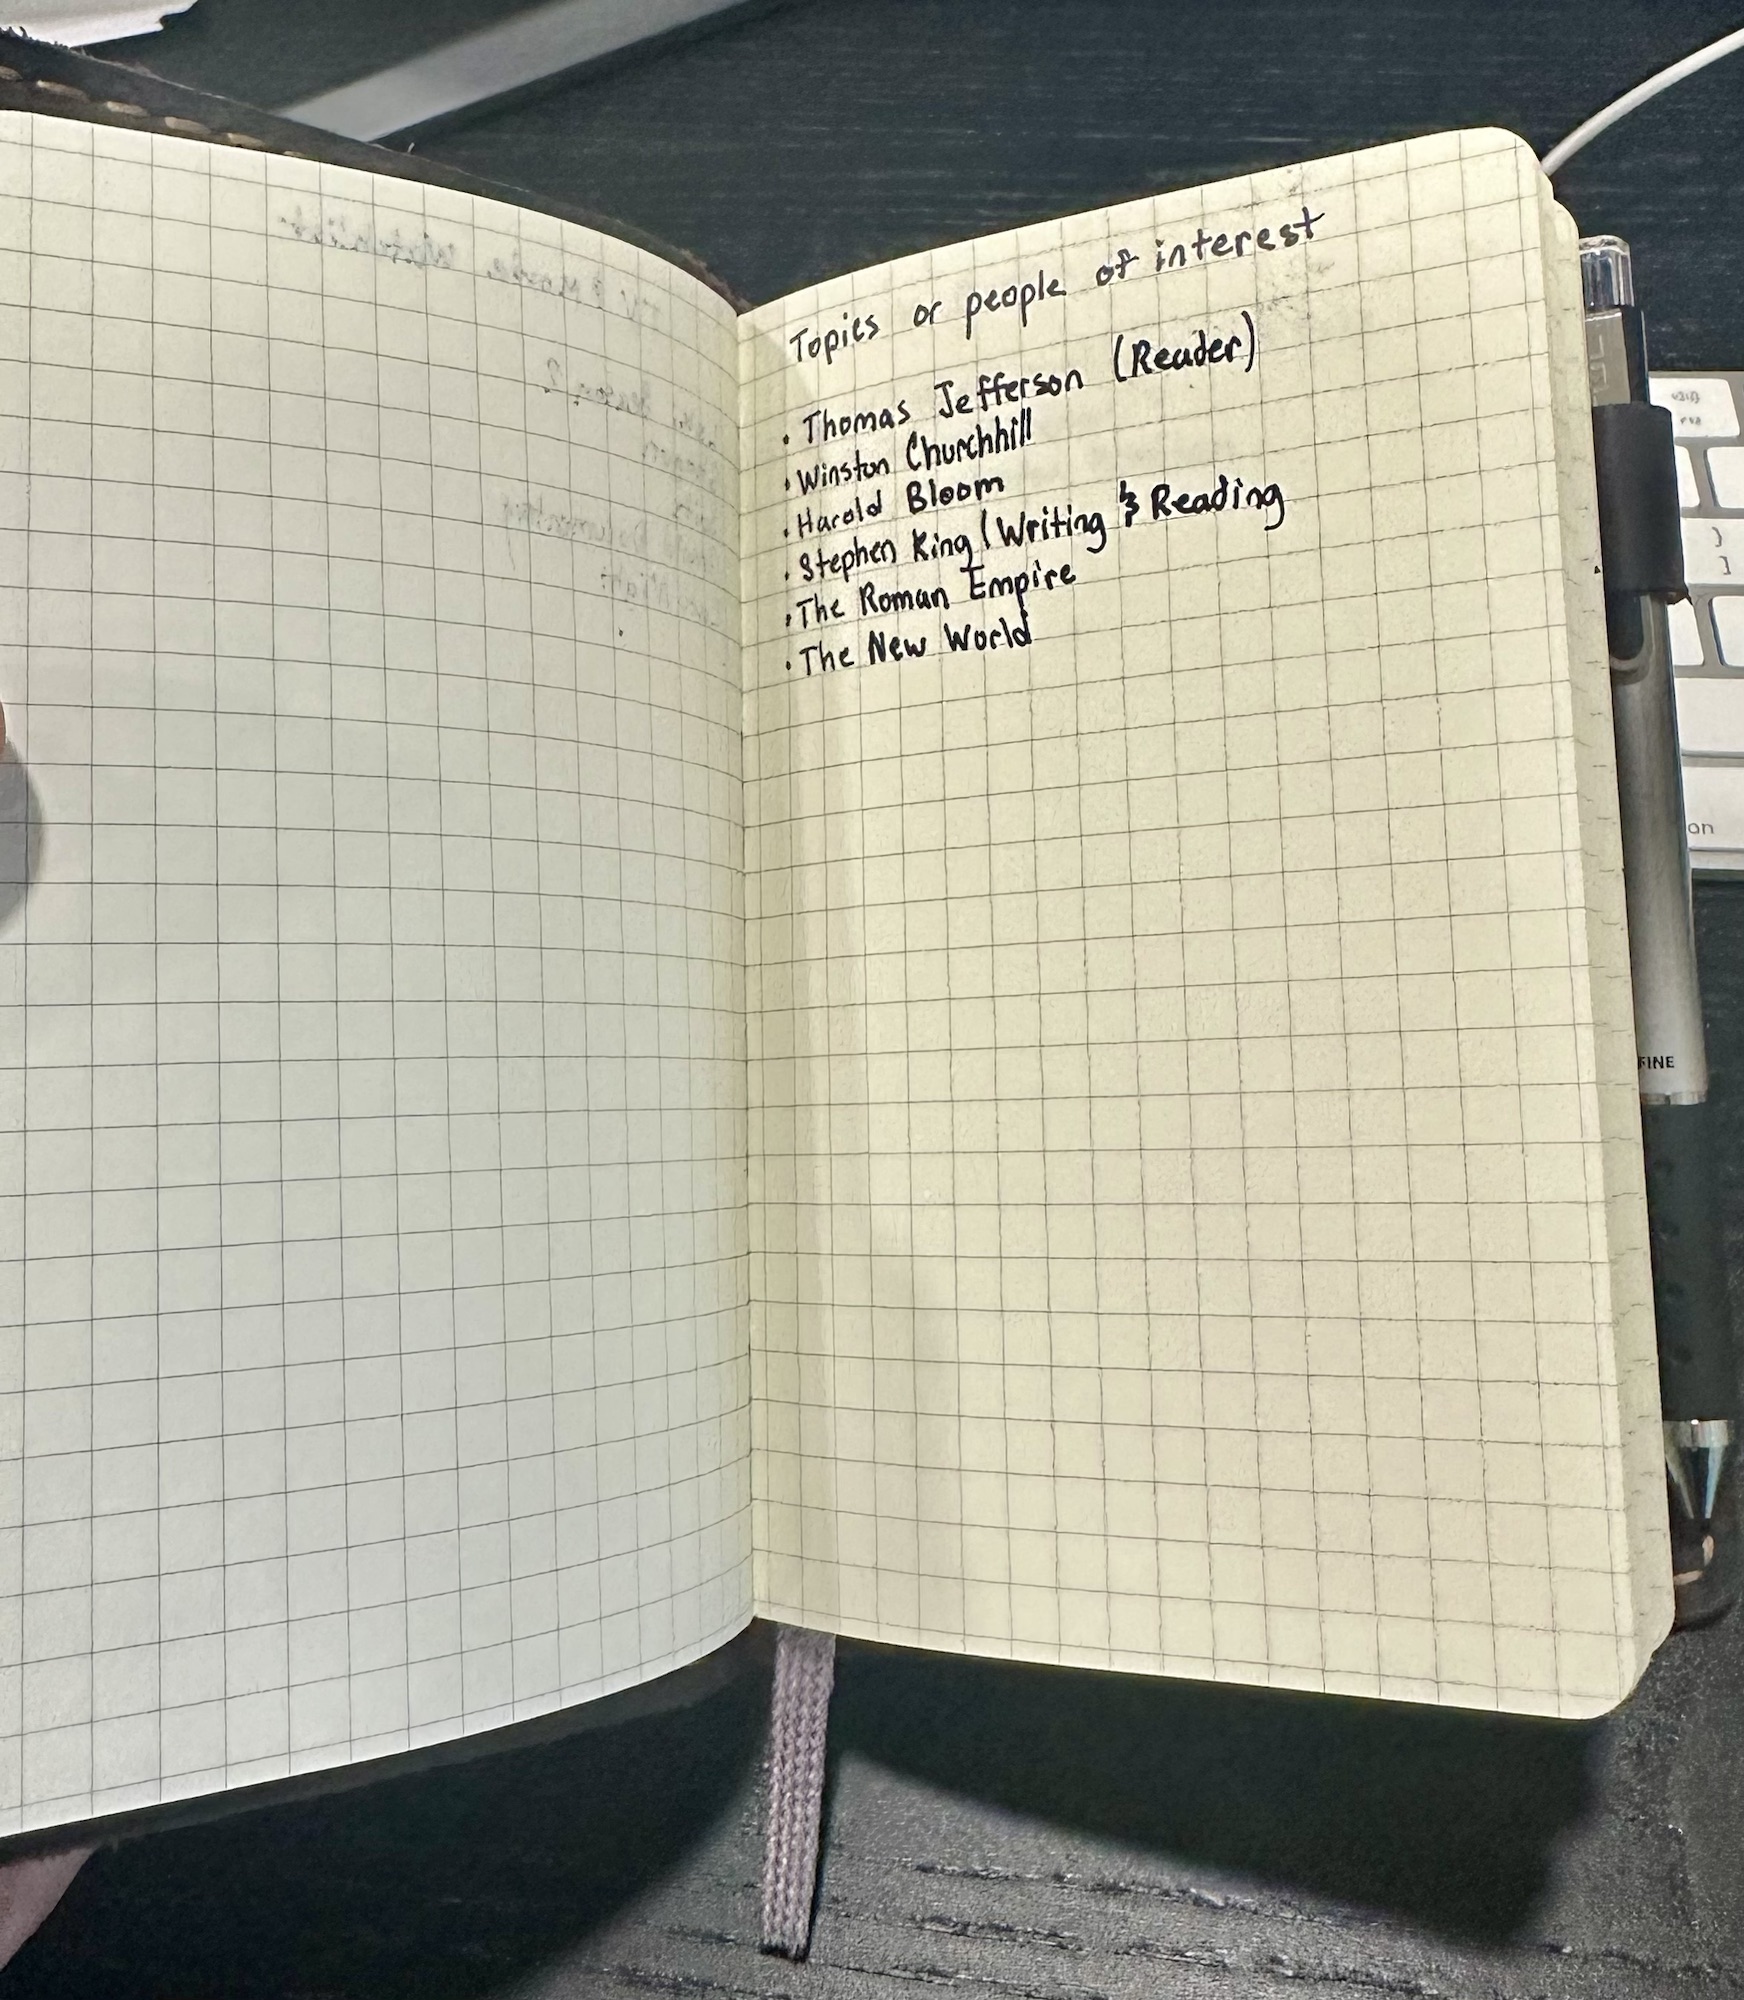 Topics or people of interest
• Thomas Jefferson (Reader)
• Winston Churchhill
• Harold Bloom
• Stephen King (Writing & Reading
• The Roman Empire
• The New World
FINE
on